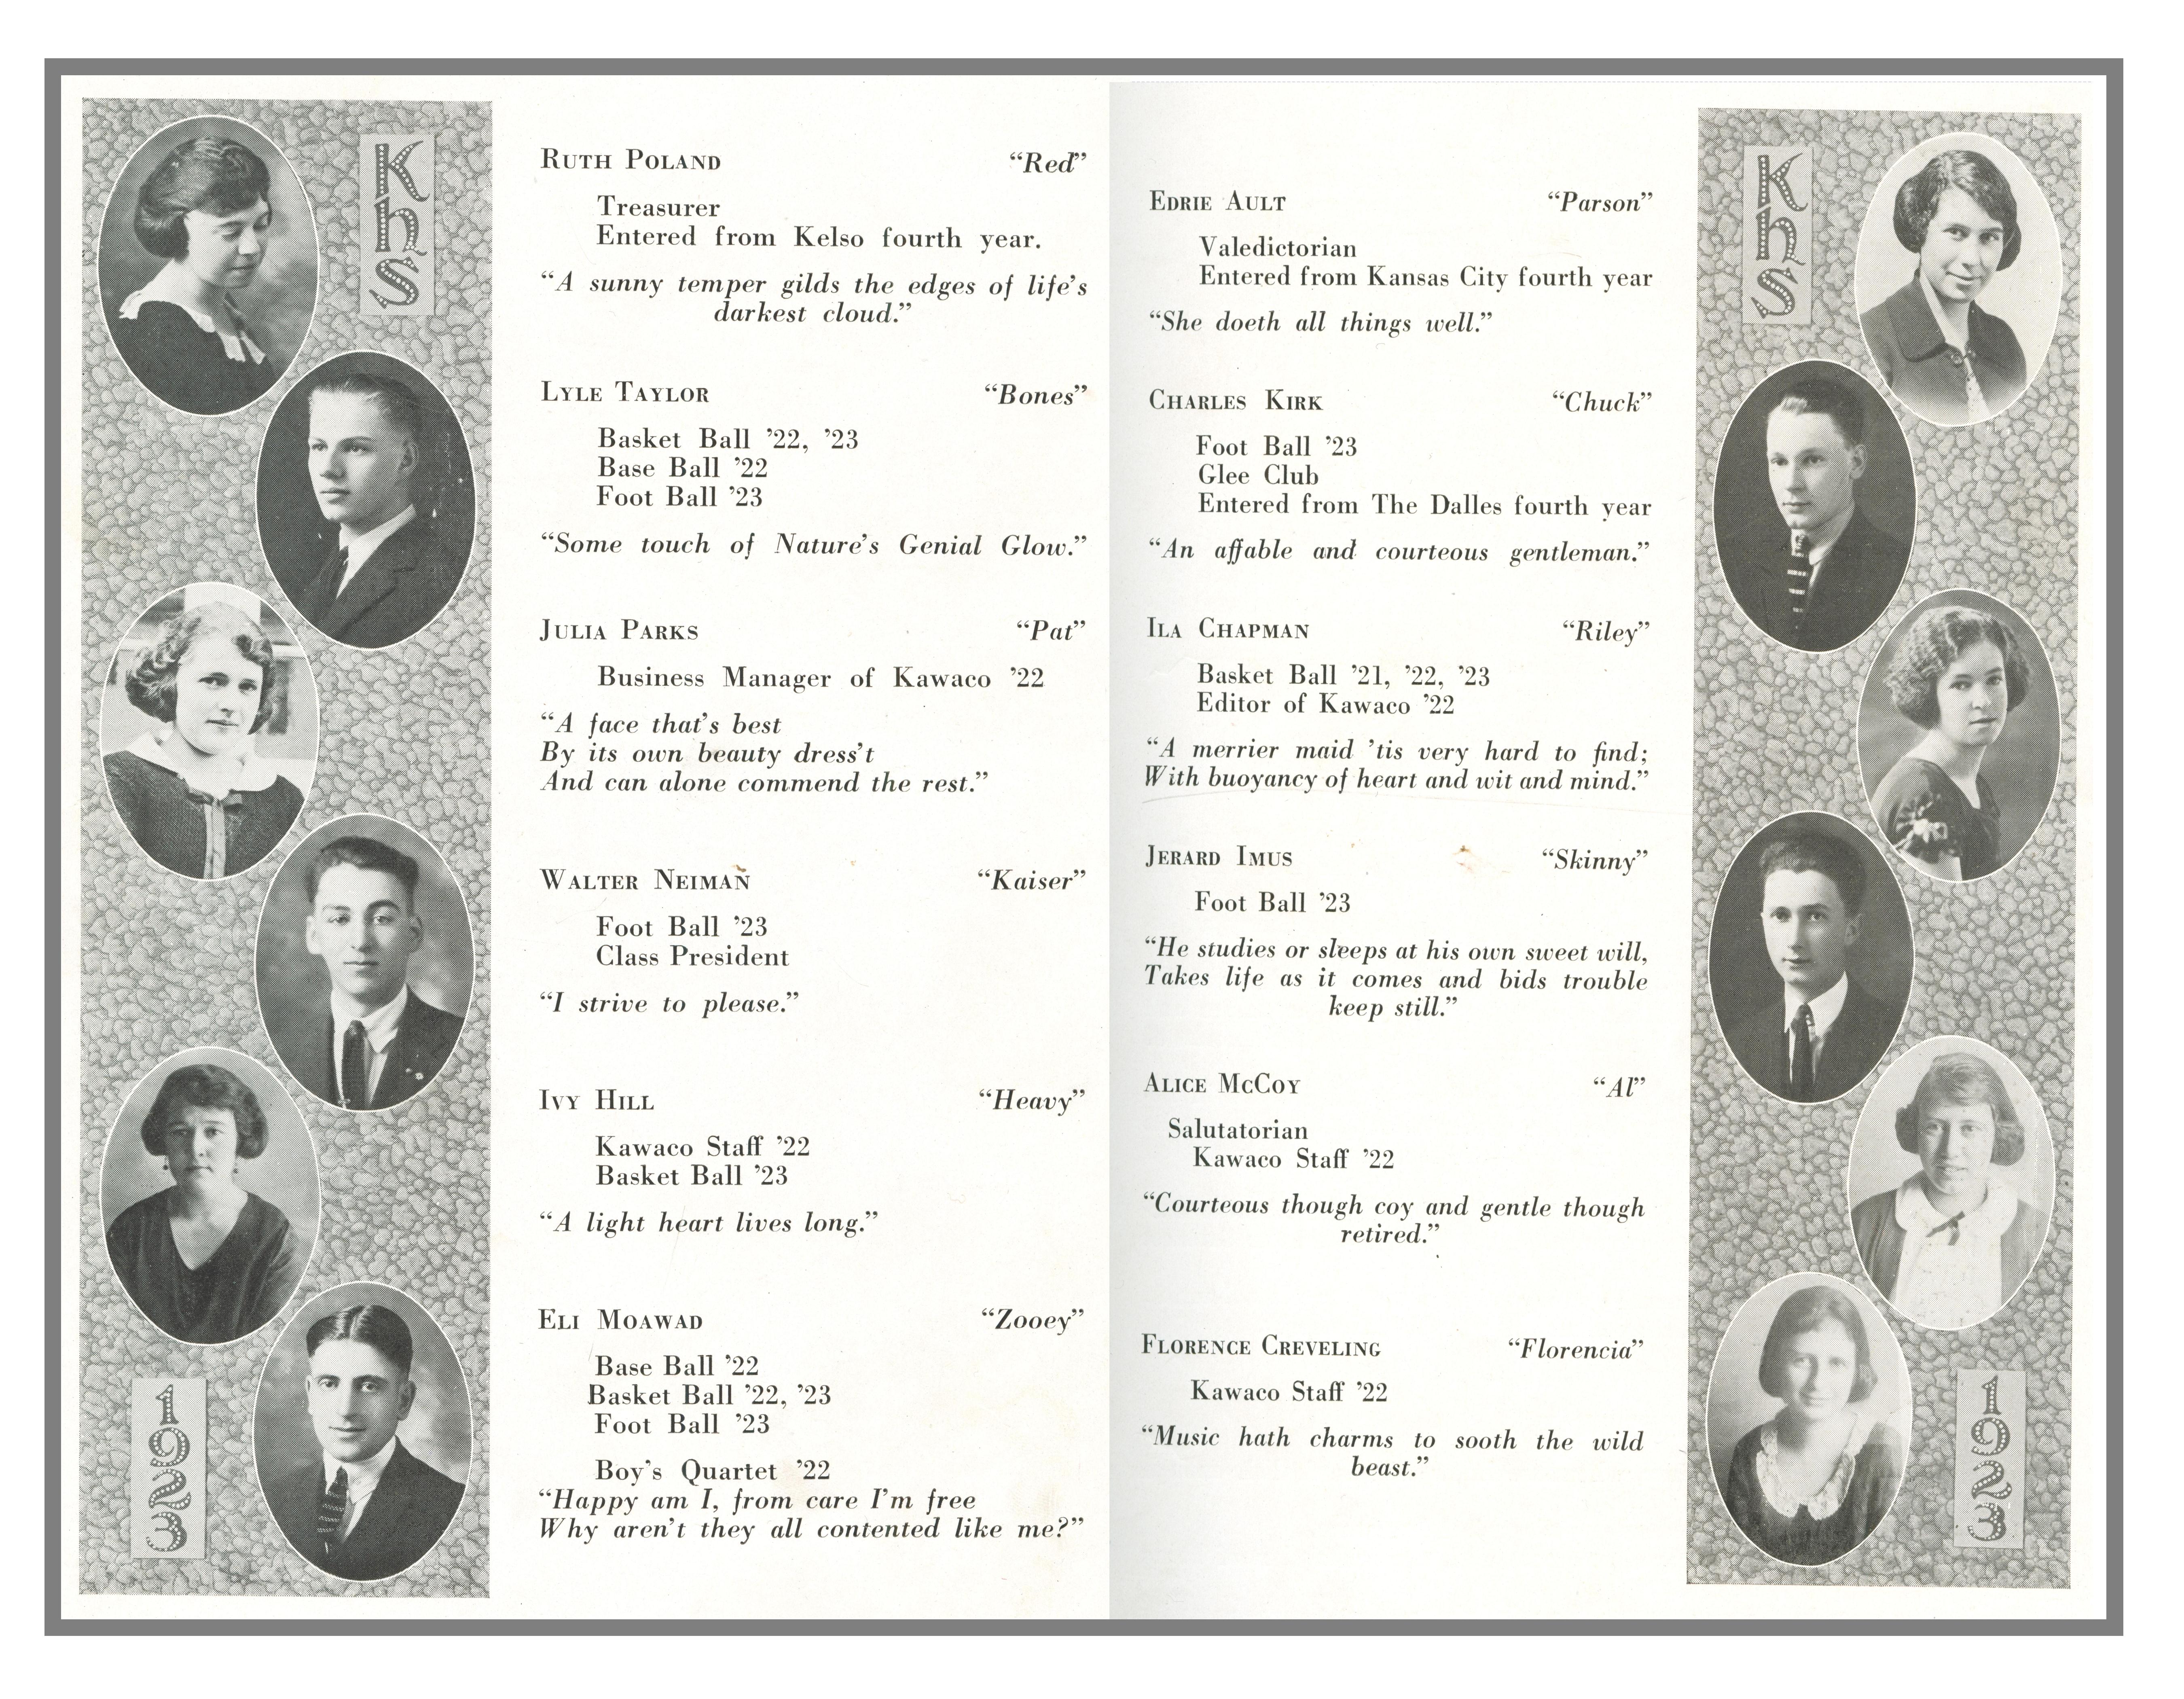 KhS
RUTH POLAND “Red”
Treasurer
Entered from Kelso fourth year.
“A sunny temper gilds the edges of life’s
darkest cloud.”
LYLE TAYLOR “Bones”
Basket Ball ’22, ’23
Base Ball ’22
Foot Ball ’23
“Some touch of Nature’s Genial Glow.”
JULIA PARKS “Pat”
Business Manager of Kawaco ’22
“A face that’s best
By its own beauty dress’t
And can alone commend the rest.”
WALTER NEIMAN “Kaiser”
Foot Ball ’23
Class President
“I strive to please.”
IVY HILL “Heavy”
Kawaco Staff ’22
Basket Ball ’23
“A light heart lives long.”
ELI MOAWAD “Zooey”
Base Ball ’22
Basket Ball ’22, ’23
Foot Ball ’23
Boy’s Quartet ’22
“Happy am I, from care I’m free
Why aren’t they all contented like me?”
1923
KhS
EDRIE AULT “Parson”
Valedictorian
Entered from Kansas City fourth year
“She doeth all things well.”
CHARLES KIRK “Chuck”
Foot Ball ’23
Glee Club
Entered from The Dalles fourth year
“An affable and courteous gentleman.”
ILA CHAPMAN “Riley”
Basket Ball ’21, ’22, ’23
Editor of Kawaco ’22
“A merrier maid ’tis very hard to find;
With buoyancy of heart and wit and mind.”
JERARD IMUS “Skinny”
Foot Ball ’23
“He studies or sleeps at his own sweet will,
Takes life as it comes and bids trouble
keep still.”
ALICE MCCOY “Al”
Salutatorian
Kawaco Staff ’22
“Courteous though coy and gentle though
retired.”
FLORENCE CREVELING “Florencia”
Kawaco Staff ’22
“Music hath charms to sooth the wild
beast.”
1923